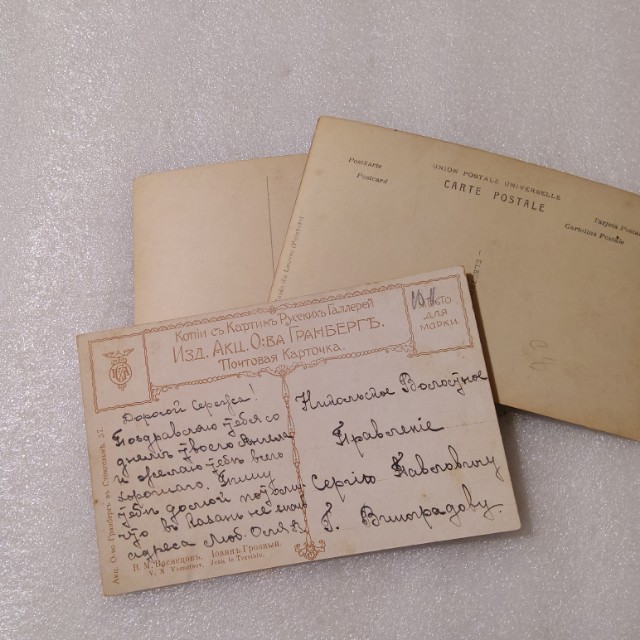 Postkarte
Postcard
UNION POSTALE UNIVERSELLE
CARTE POSTALE
Tarjeta Postal
Cartolina Postale
Копіи съ Картинъ Русскихъ Галлерей
Изд. Акц. О-ва Гранбергъ.
Почтовая Карточка.
Мѣсто
для
марки.
Дорогой Сережа!
Поздравляю тебя со
днемъ твоего Ангела
и желаю тебѣ всего
хорошаго. Пишу
тебѣ домой потому
что въ Казань не знаю
адреса Люб. Оля
Никольское Волостное
Правленіе
Сергѣю Павловичу
Г. Виноградову.
Акц. О-во Гранбергъ въ Стокгольмѣ. 37.
В. М. Васнецовъ. Іоаннъ Грозный.
V. M. Vasnetsov. Jean le Terrible.